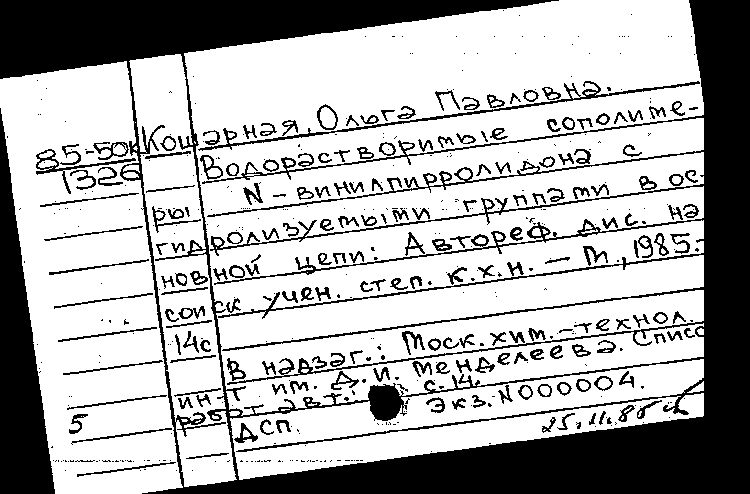 85-50к
1326
Кошарная, Ольга Павловна.
Водорастворимые сополиме-
ры N-винилпирролидона с
гидролизуемыми группами в ос-
новной цепи: Автореф. дис. на
соиск. учен. степ. к.х.н. - М., 1985.-
14с
В надзаг.: Моск. хим.-технол.
ин-т им. Д. И. Менделеева. Списо
работ авт.: с. 14.
ДСП. Экз. N000004.
5
25.11.85